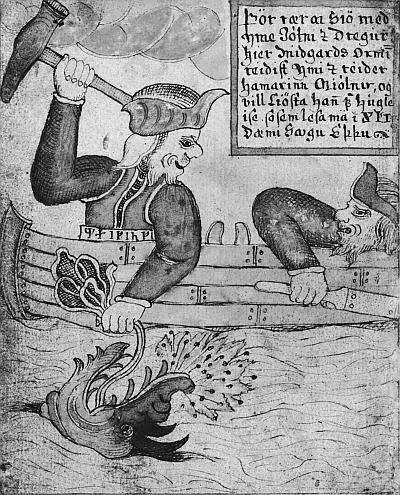 Þör rær a Siö med
Yme Jötni & Dregur
hier Midgards Orm
reidist Ymi & reider
hamarinn Miolnir, og
vill Liösta hañ hugle
ise sosem lesa ma i
dæmi Sógu Eddu